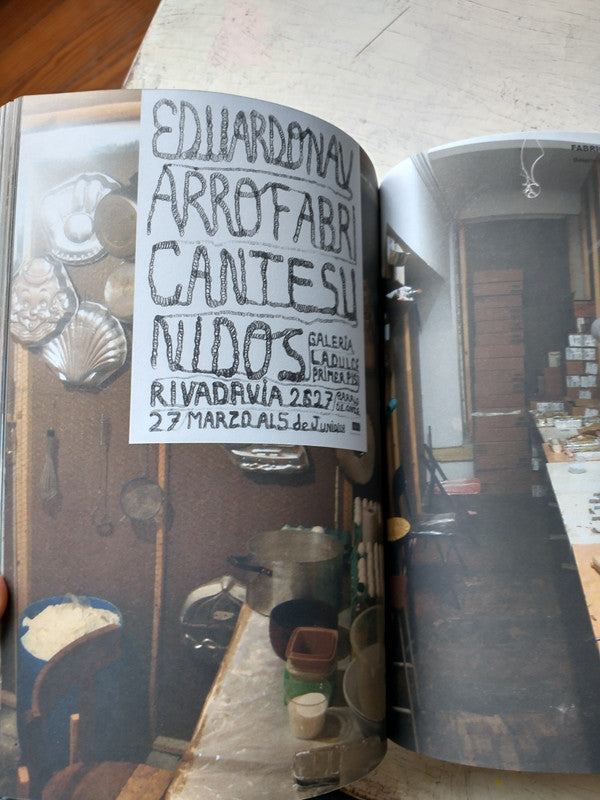 EDUARDONAV
ARROFABRI
CANTESU
NIDOS
GALERÍA
LADULCE
PRIMER
RIVADAVIA 2627
BARRIO
DE ONCE
27 MARZO AL 5 de Junio
FABRI